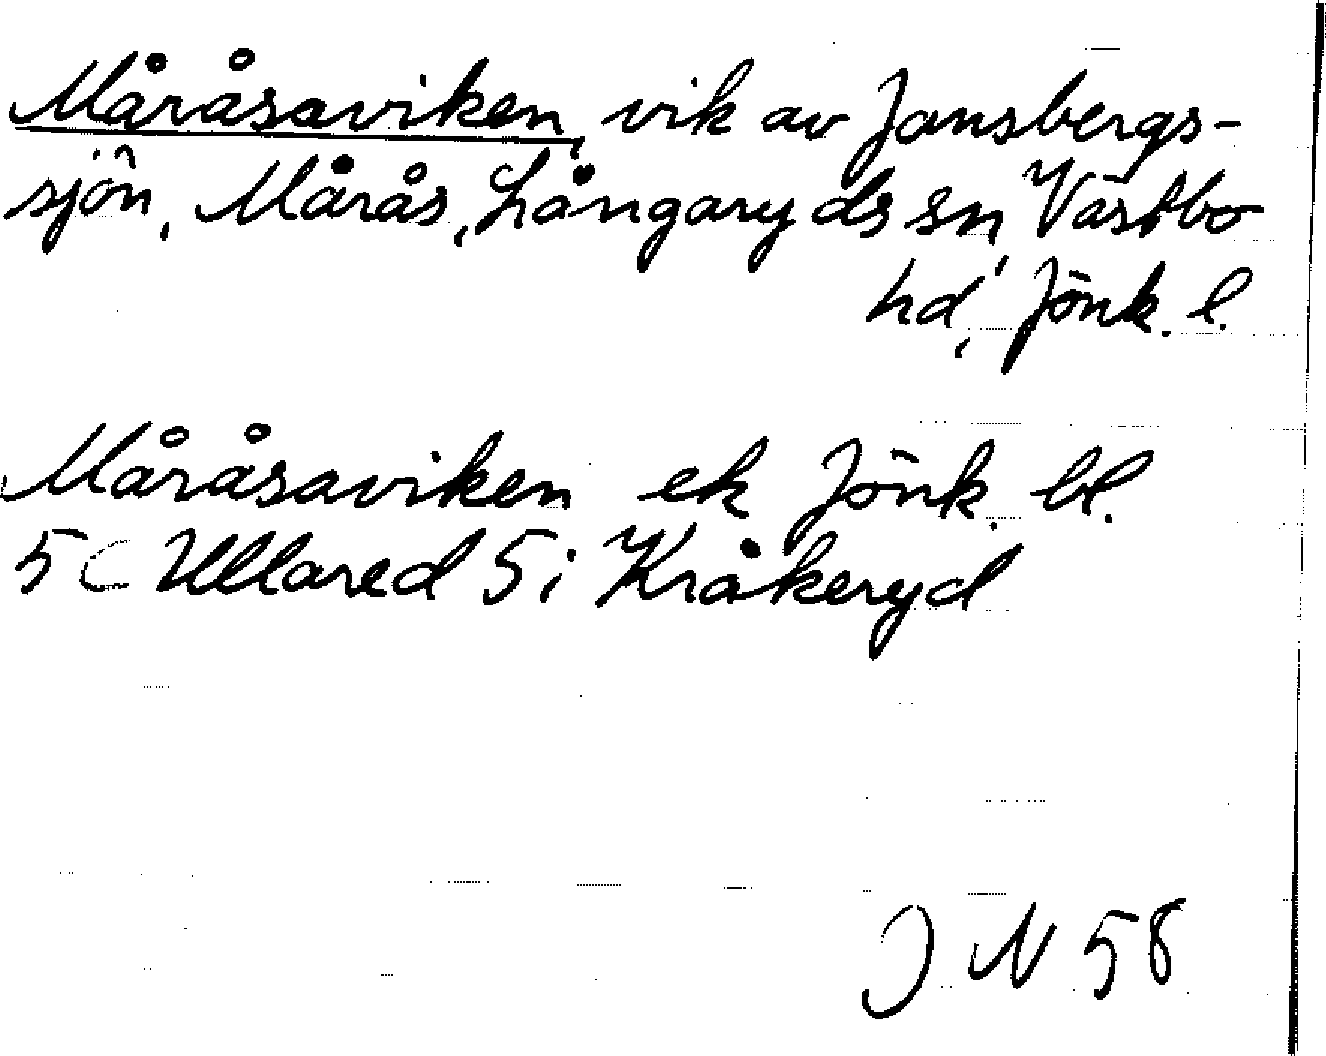 Måråsaviken, vik av Jansbergs-
sjön, Mårås, Långaryds sn, Västbo
hd, Jönk. l.
Måråsaviken ek Jönk. bl.
5 C Ullared 5 i Kråkeryd
J N 58